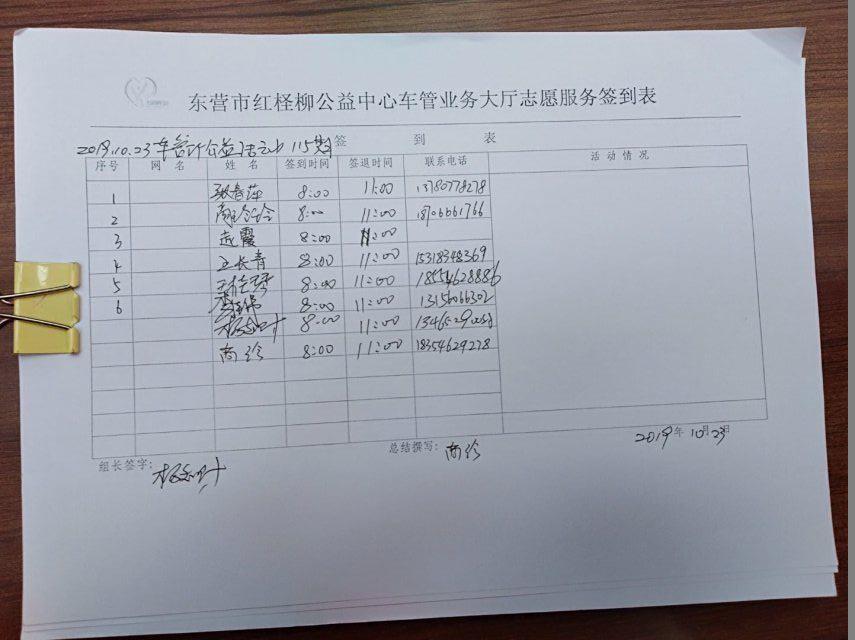 东营市红柽柳公益中心车管业务大厅志愿服务签到表
签 到 表
2019.10.23 115期
序号 网 名 姓 名 签到时间 签退时间 联系电话 活 动 情 况
1 张春萍 8:00 11:00 13780778278
2 8:00 11:00 18706661766
3 赵霞 8:00 11:00
4 王长青 8:00 11:00 15318348369
5 8:00 11:00 18554628886
6 8:00 11:00 13156066302
8:00 11:00
商珍 8:00 11:00 18354629278
组长签字: 总结撰写: 商珍 2019年10月23日